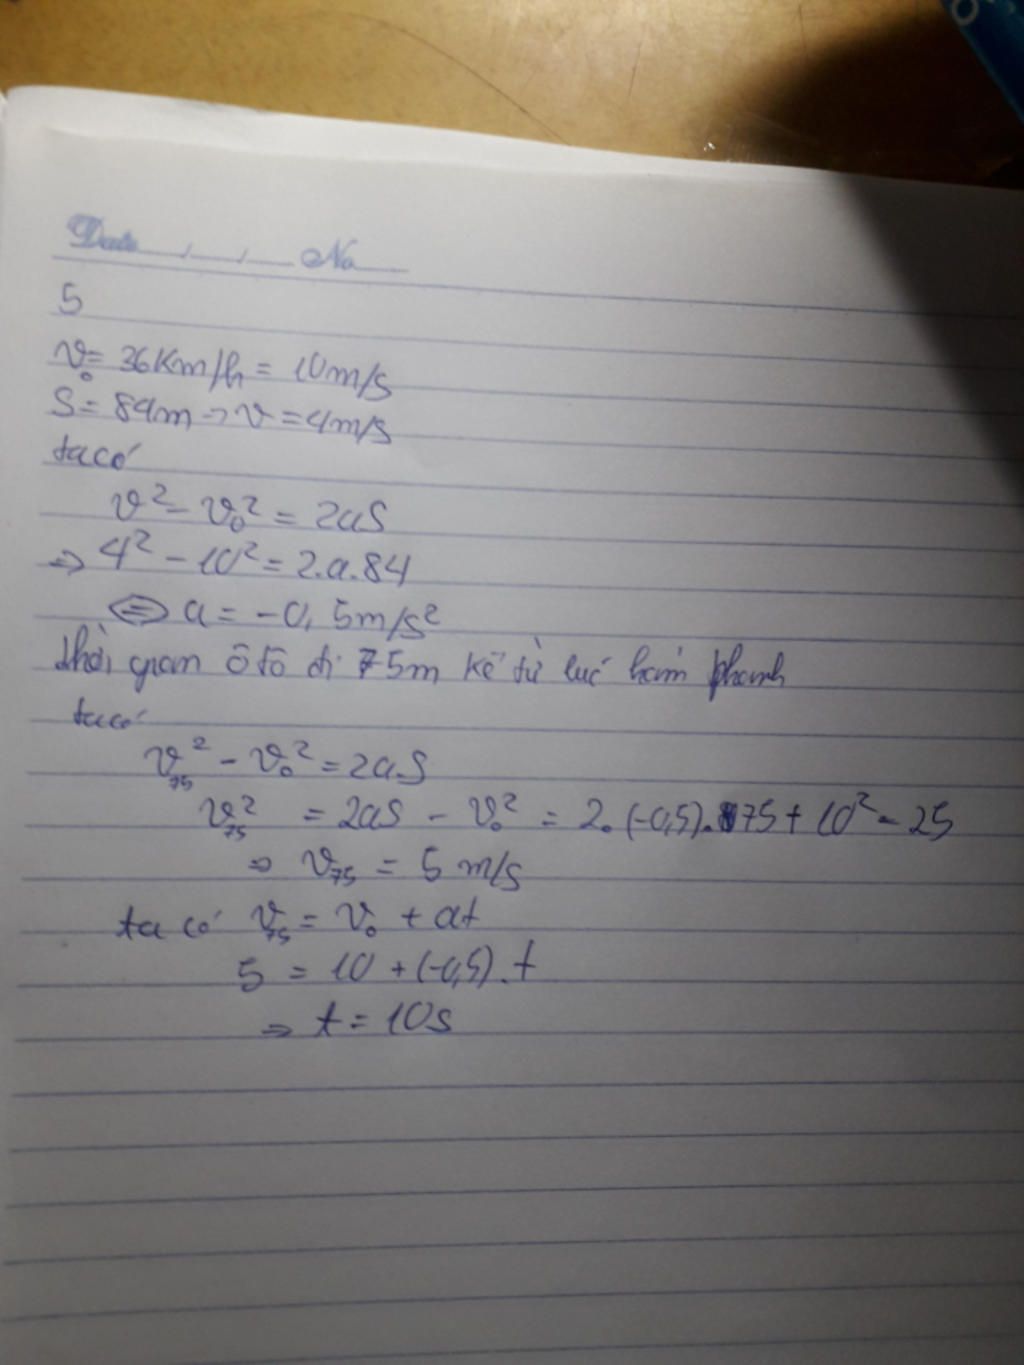 Date / / No
5
v₀= 36Km/h = 10m/s
S= 84m → v = 4m/s
ta có
v² - v₀² = 2aS
⇒ 4² - 10² = 2.a.84
⇔ a = -0,5m/s²
thời gian ô tô đi 75m kể từ lúc hãm phanh
ta có
v₇₅² - v₀² = 2a.S
v₇₅² = 2aS - v₀² = 2.(-0,5).75 + 10² = 25
⇒ v₇₅ = 5 m/s
ta có v₇₅ = v₀ + at
5 = 10 + (-0,5).t
⇒ t = 10s